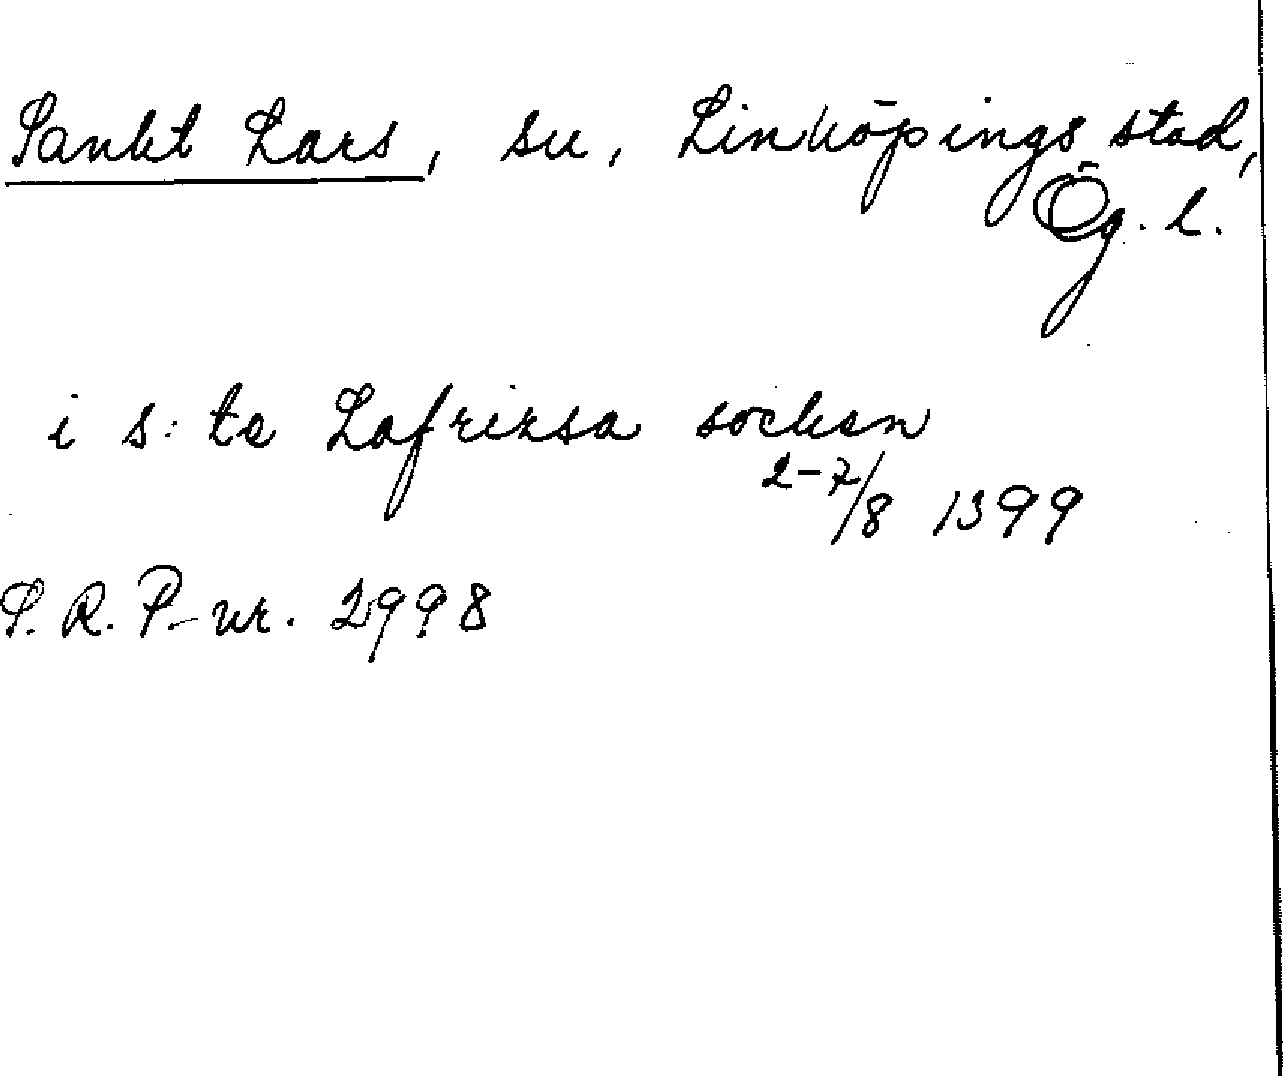 Sankt Lars, sn, Linköpings stad,
Ög. l.
i s:te Lafrizsa socken
2-7/8 1399
S. R. P. nr. 2998